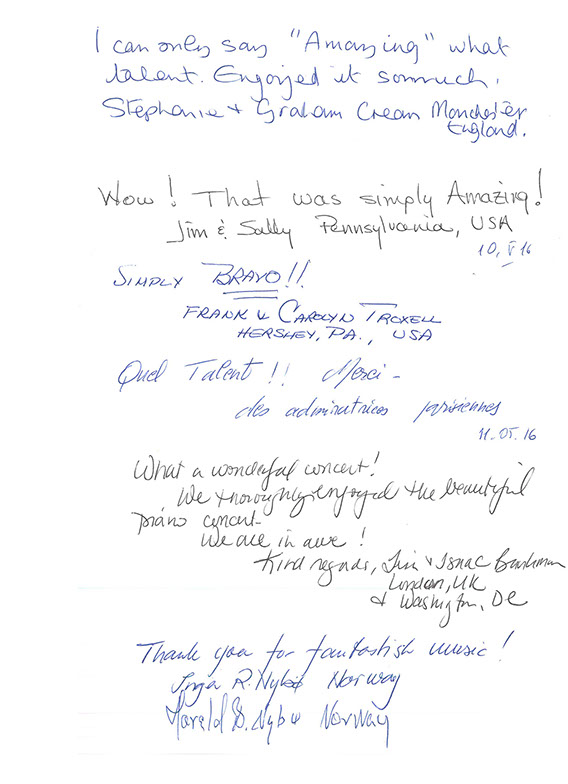 I can only say "Amazing" what
talent. Engoyed it somuch.
Stephanie + Graham Crean Manchester
England.
Wow! That was simply Amazing!
Jim & Sally Pennsylvania, USA
10, V 16
SIMPLY BRAVO!!
FRANK & CAROLYN TROXELL
HERSHEY, PA., USA
Quel Talent!! Merci -
des admiratrices parisiennes
11.05.16
What a wonderful concert!
We thoroughly enjoyed the beautiful
piano concert
We are in awe!
Kind regards, & Isaac
London, UK
& Washington, DC
Thank you for fantastish music!
Inga R. Nybø Norway
Harald G. Nybø Norway